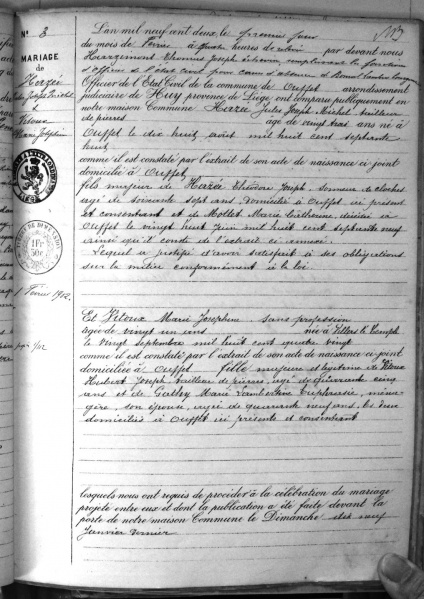 N° 3
MARIAGE
de
Herzée
Jules Joseph Michel
&
Vitoux
Marie Joséphine
1 Février 1902.
L'an mil neuf cent deux, le premier jour
du mois de Février à heures de par devant nous
Hargemont Thomas Joseph échevin remplissant les fonctions
d'officier de l'état civil pour cause d'absence
Officier de l'Etat Civil de la commune de Ouffet arrondissement
judiciaire de Huy province de Liège, ont comparu publiquement en
notre maison Commune Herzée Jules Joseph Michel tailleur
de pierres âgé de vingt trois ans né à
Ouffet le dix huit août mil huit cent septante
huit
comme il est constaté par l'extrait de son acte de naissance ci-joint
domicilié à Ouffet,
fils majeur de Herzée Théodore Joseph, sonneur de cloches
âgé de soixante sept ans domicilié à Ouffet ici présent
et consentant et de Mottet Marie Catherine, décédée à
Ouffet le vingt huit juin mil huit cent septante neuf
ainsi qu'il conste de l'extrait ci annexé.
Lequel a justifié d'avoir satisfait à ses obligations
sur la milice conformément à la loi.
Et Vitoux Marie Joséphine sans profession
âgée de vingt un ans née à Villers le Temple
le vingt septembre mil huit cent quatre vingt
comme il est constaté par l'extrait de son acte de naissance ci-joint
domiciliée à Ouffet fille majeure et légitime de Vitoux
Hubert Joseph, tailleur de pierres, âgé de quarante cinq
ans et de Marie Lambertine Euphrasie, ména-
gère, son épouse, âgée de quarante neuf ans, les deux
domiciliés à Ouffet ici présents et consentant
lesquels nous ont requis de procéder à la célébration du mariage
projeté entre eux et dont la publication a été faite devant la
porte de notre maison Commune le Dimanche dix neuf
Janvier dernier